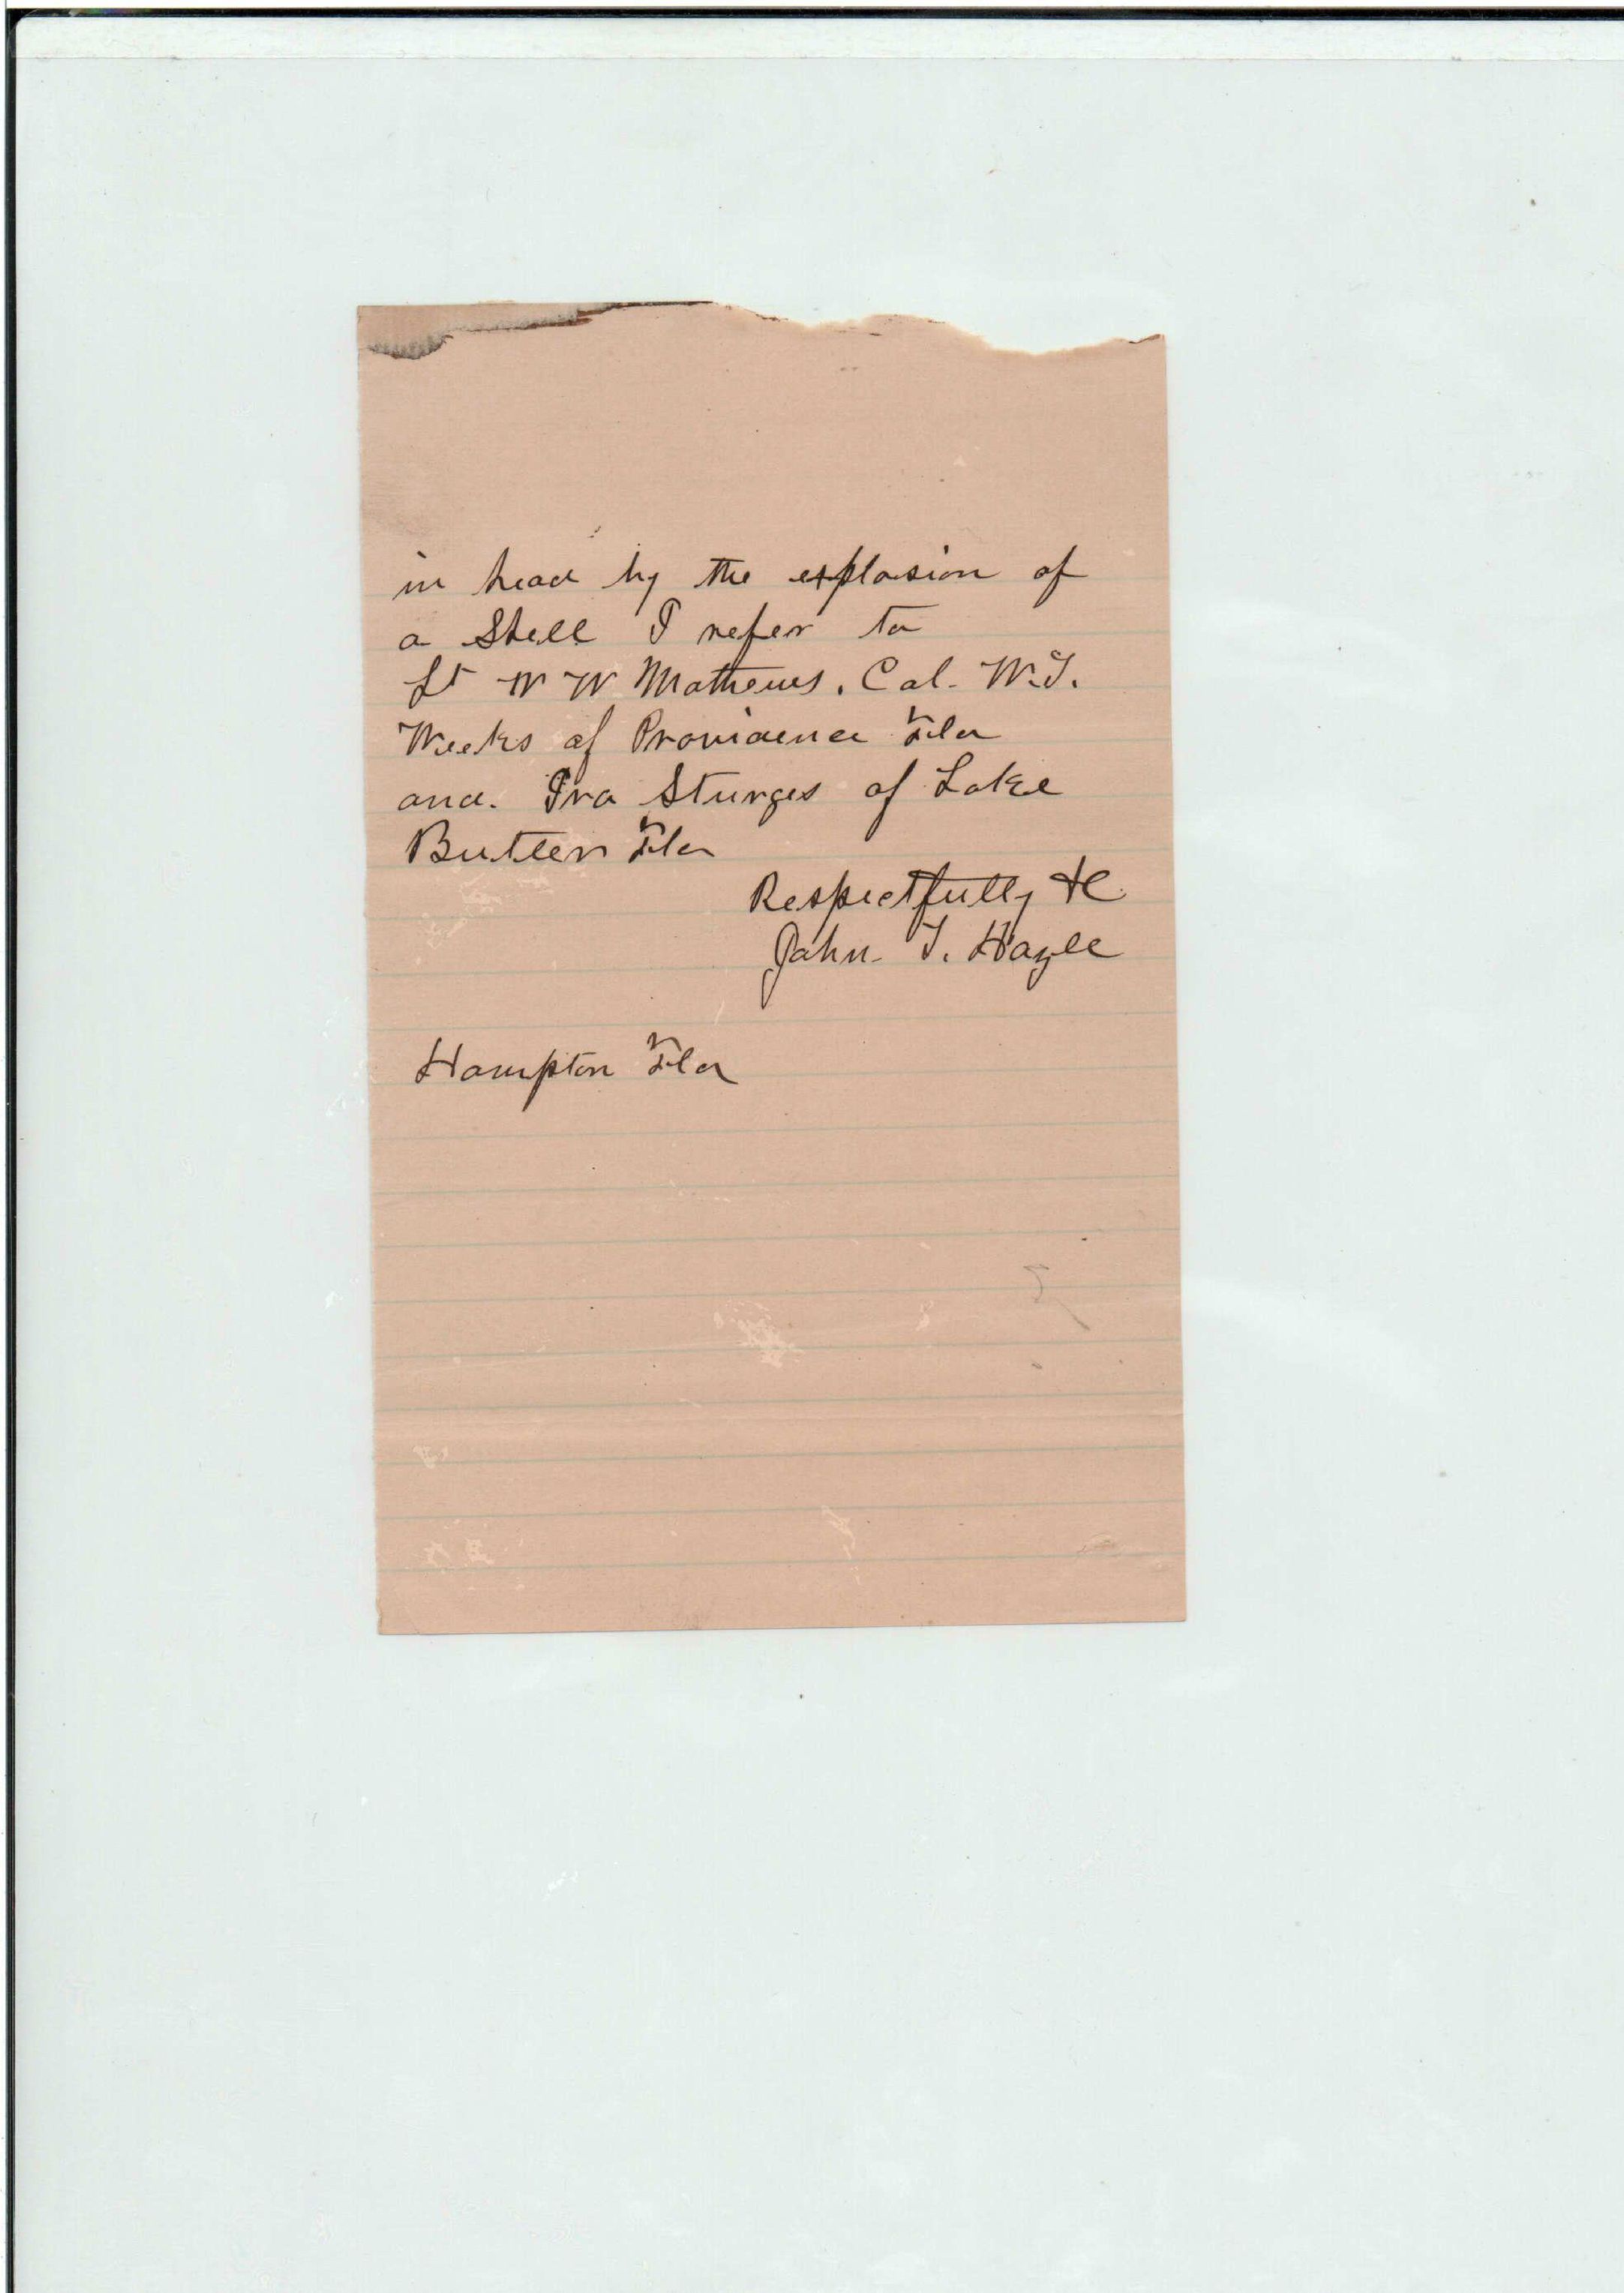 in head by the explosion of
a Shell I refer to
Lt W W Mathews. Col. W.T.
Weeks of Providence Fla
and. Ira Sturges of Lake
Butler Fla
Respectfully &C
John. T. Hazle
Hampton Fla